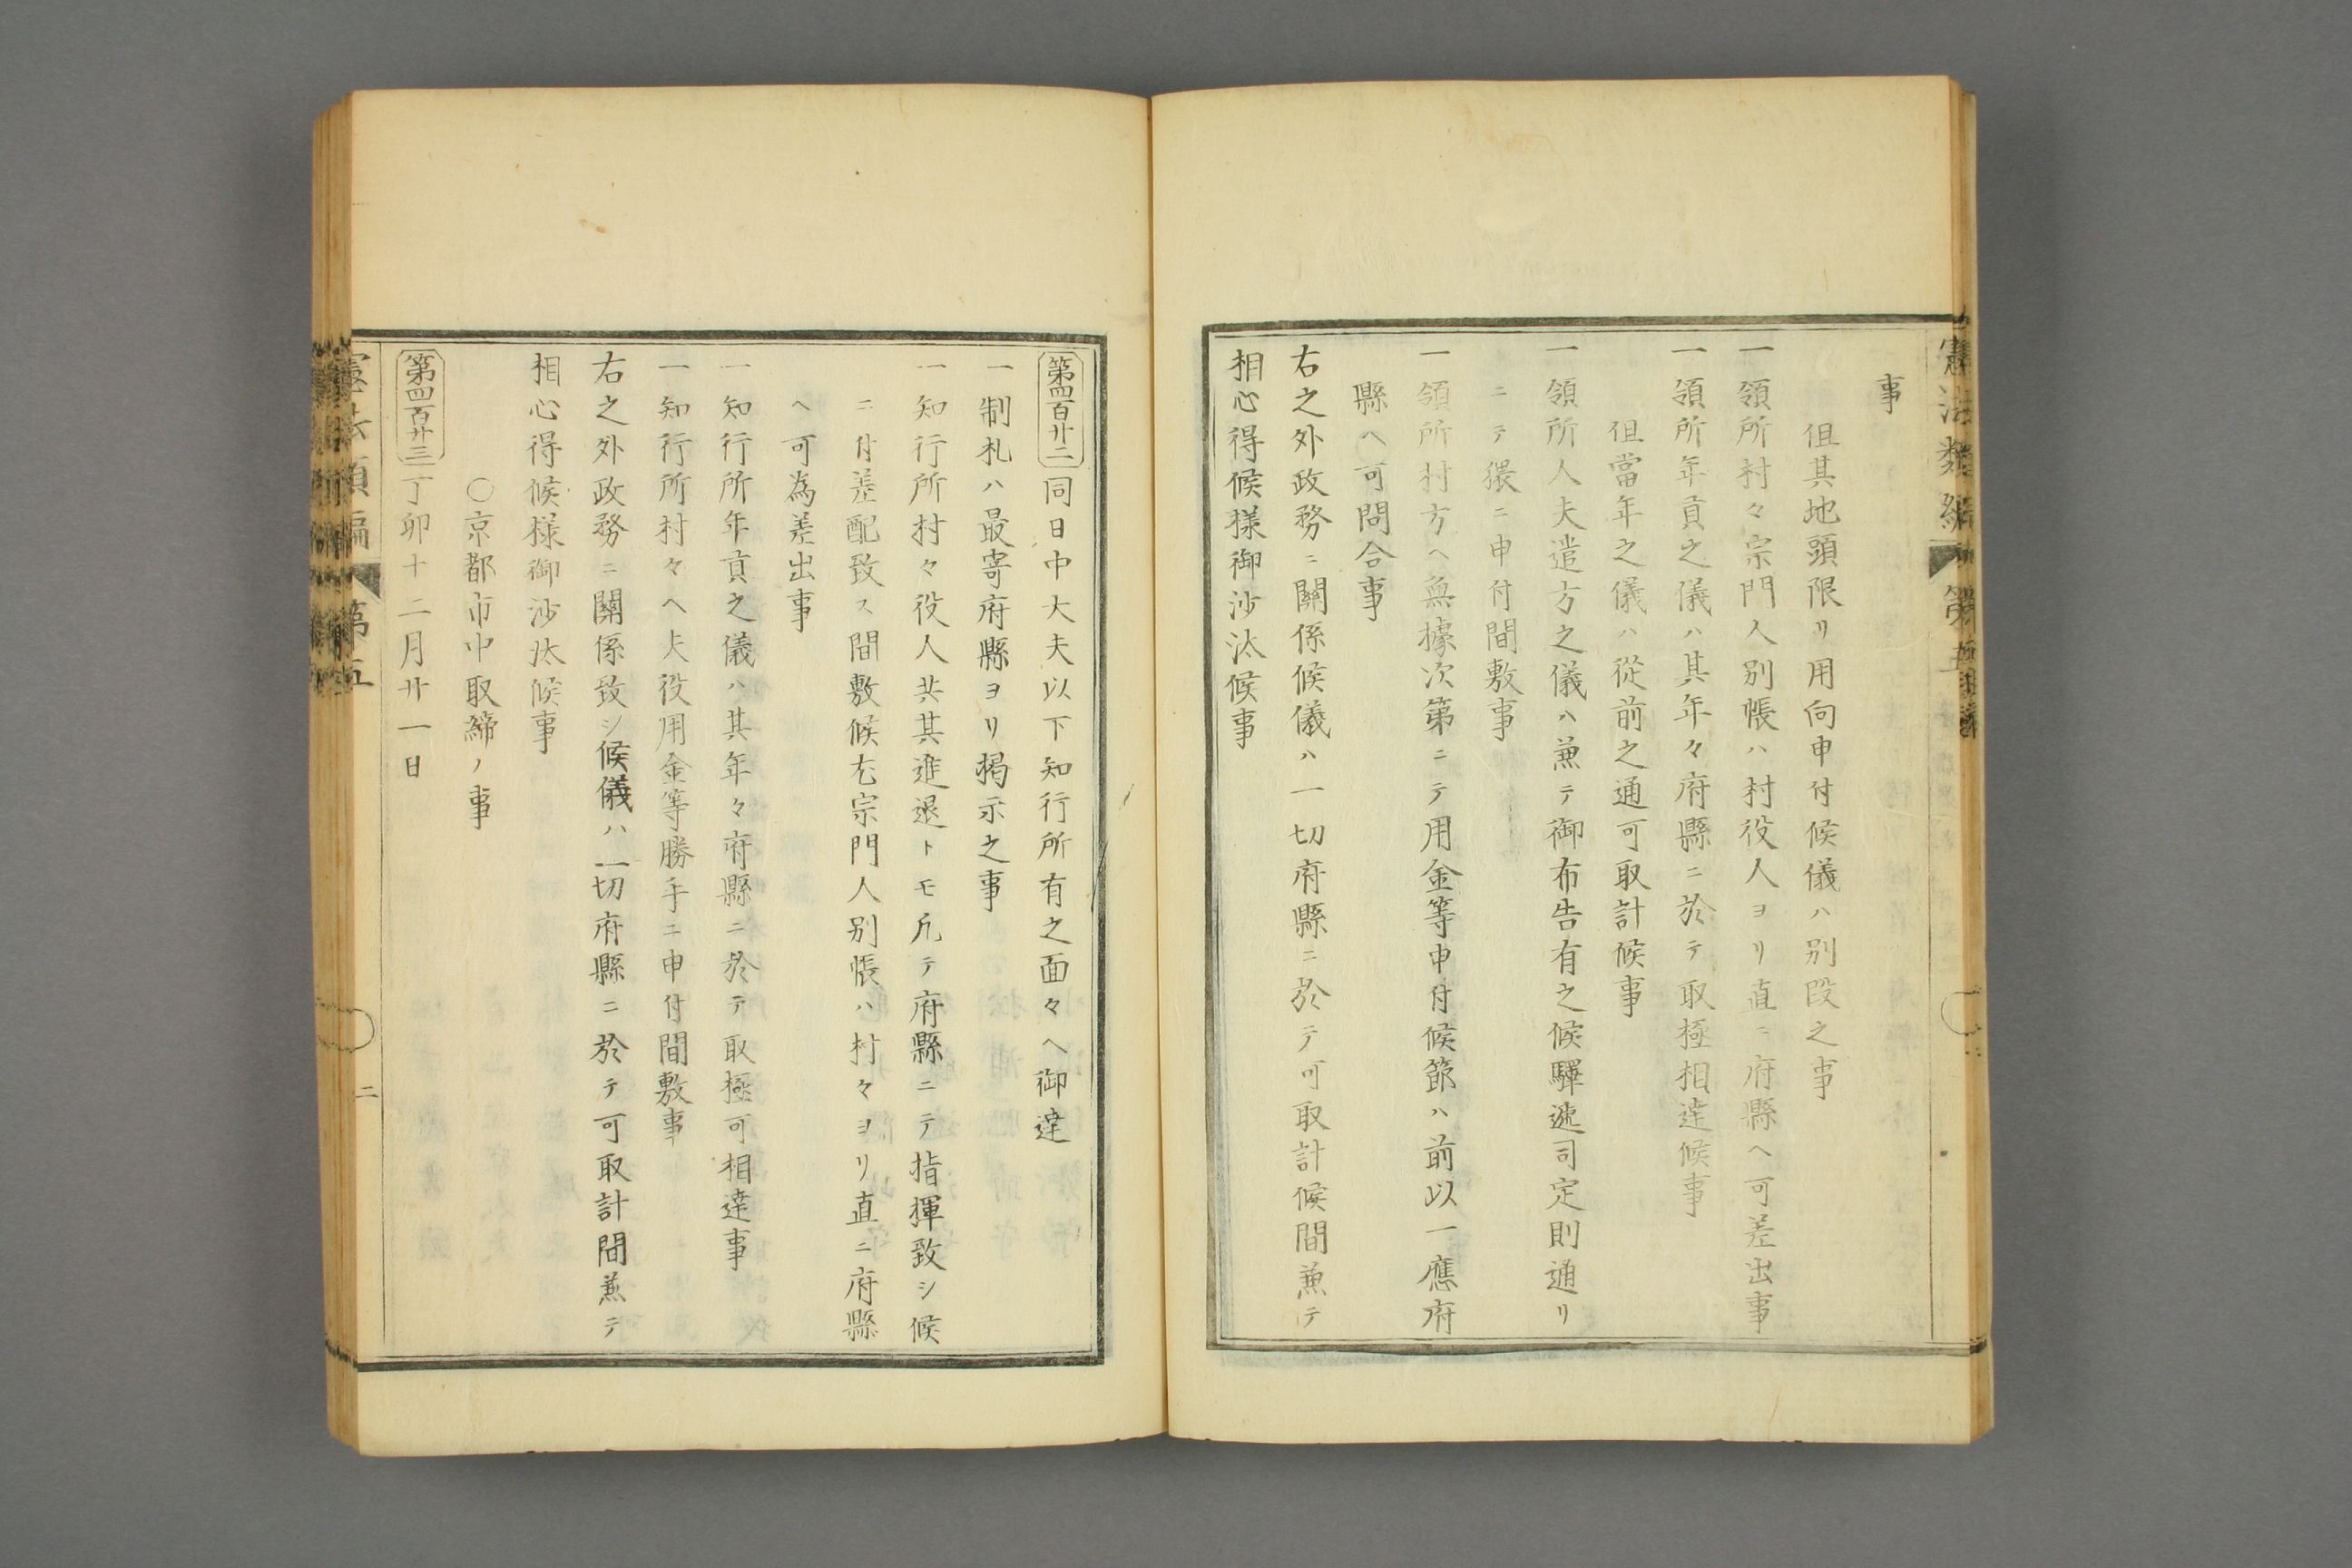 憲法類編 第五
事
但其地頭限リ用向申付候儀ハ別段之事
一領所村々宗門人別帳ハ村役人ヨリ直ニ府縣ヘ可差出事
一領所年貢之儀ハ其年々府縣ニ於テ取極相達候事
但當年之儀ハ從前之通可取計候事
一領所人夫遣方之儀ハ兼テ御布告有之候驛遞司定則通リ
ニテ猥ニ申付間敷事
一領所村方ヘ無據次第ニテ用金等申付候節ハ前以一應府
縣ヘ可問合事
右之外政務ニ關係候儀ハ一切府縣ニ於テ可取計候間兼テ
相心得候様御沙汰候事
第四百廿二 同日中大夫以下知行所有之面々ヘ御達
一制札ハ最寄府縣ヨリ掲示之事
一知行所村々役人共其進退トモ凡テ府縣ニテ指揮致シ候
ニ付差配致ス間敷候尤宗門人別帳ハ村々ヨリ直ニ府縣
ヘ可為差出事
一知行所年貢之儀ハ其年々府縣ニ於テ取極可相達事
一知行所村々ヘ夫役用金等勝手ニ申付間敷事
右之外政務ニ關係致シ候儀ハ一切府縣ニ於テ可取計間兼テ
相心得候様御沙汰候事
〇京都市中取締ノ事
第四百廿三 丁卯十二月廿一日
憲法類編 第五
二